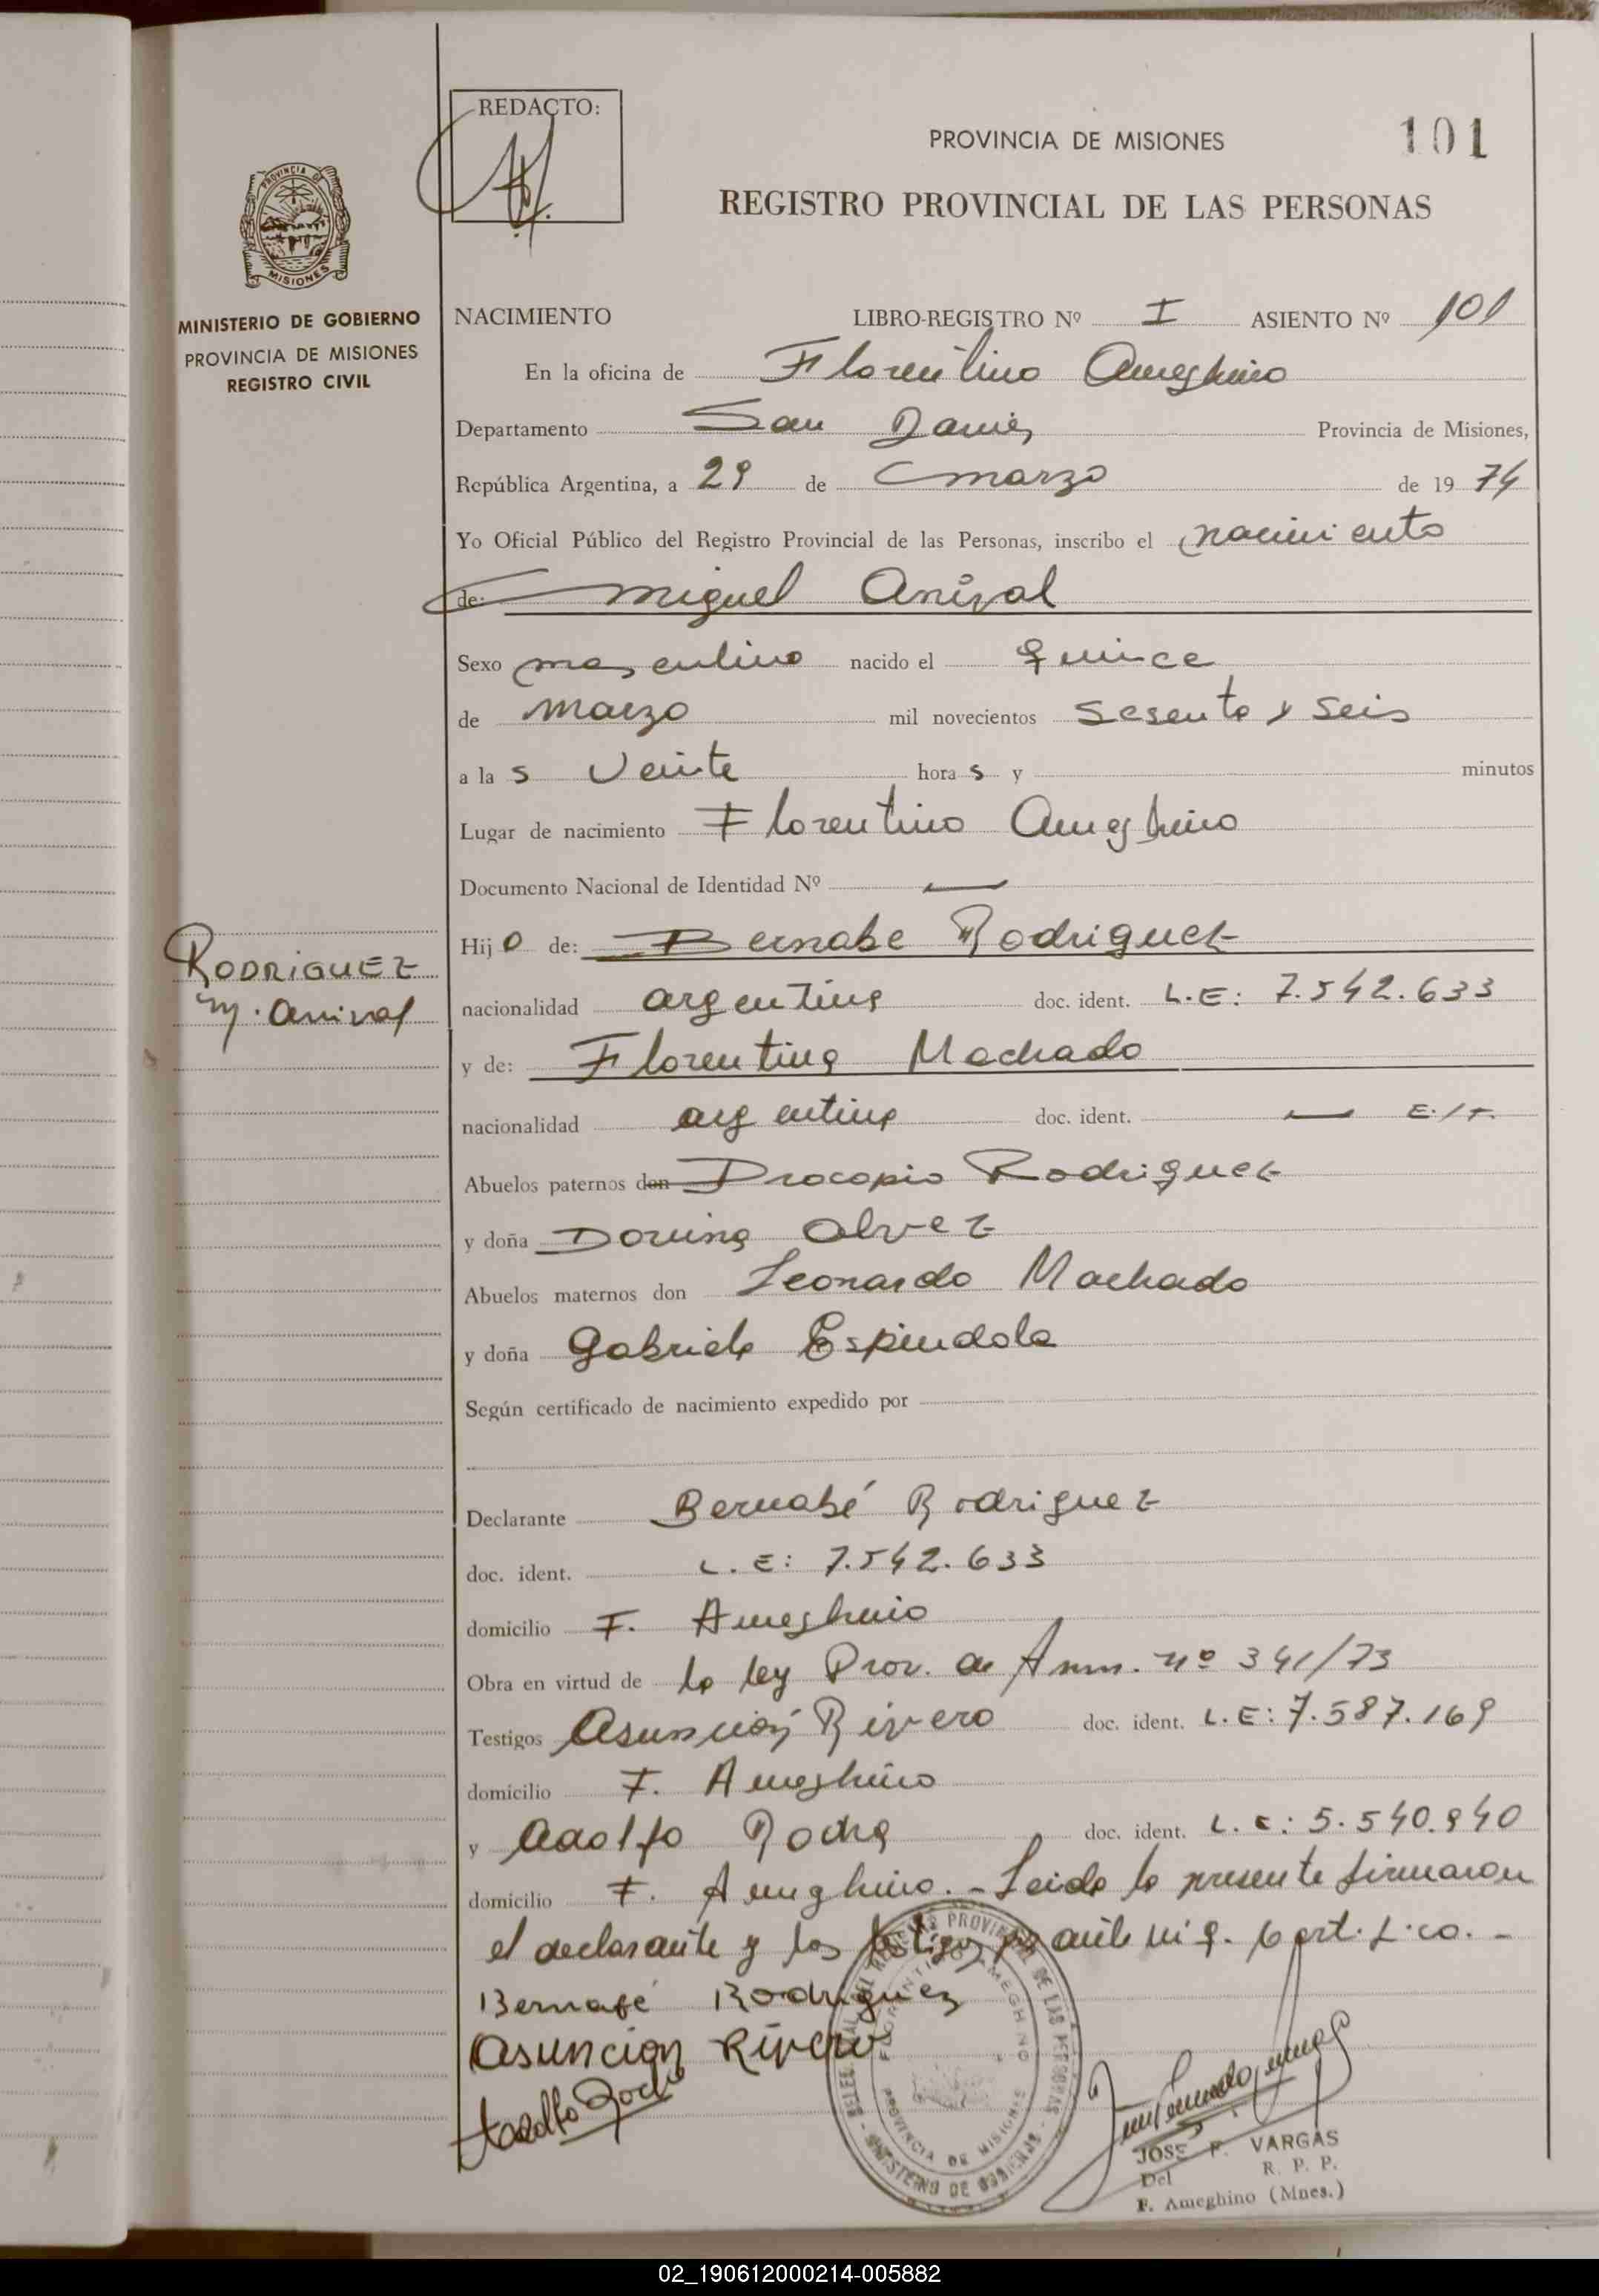 REDACTO:
PROVINCIA DE MISIONES
101
REGISTRO PROVINCIAL DE LAS PERSONAS
PROVINCIA DE
MISIONES
MINISTERIO DE GOBIERNO
PROVINCIA DE MISIONES
REGISTRO CIVIL
NACIMIENTO LIBRO-REGISTRO Nº I ASIENTO Nº 101
En la oficina de Florentino Ameghino
Departamento San Javier Provincia de Misiones,
República Argentina, a 29 de marzo de 19 74
Yo Oficial Público del Registro Provincial de las Personas, inscribo el nacimiento
de: Miguel Anival
Sexo masculino nacido el quince
de marzo mil novecientos sesenta y seis
a la s veinte hora s y minutos
Lugar de nacimiento Florentino Ameghino
Documento Nacional de Identidad Nº —
RODRIGUEZ
M. Anival
Hij o de: Bernabe Rodriguez
nacionalidad argentina doc. ident. L.E: 7.542.633
y de: Florentina Machado
nacionalidad argentina doc. ident. — E./T.
Abuelos paternos don Procopio Rodriguez
y doña Dorina Alvez
Abuelos maternos don Leonardo Machado
y doña Gabriela Espindola
Según certificado de nacimiento expedido por
Declarante Bernabé Rodriguez
doc. ident. L.E: 7.542.633
domicilio F. Ameghino
Obra en virtud de la ley Prov. de Amn. nº 341/73
Testigos Asunción Rivero doc. ident. L.E: 7.587.169
domicilio F. Ameghino
y Adolfo Rocha doc. ident. L.E: 5.540.940
domicilio F. Ameghino.- Leida la presente firmaron
el declarante y los testigos ante mi
Bernabé Rodriguez
Asuncion Rivero
Adolfo Rocha
REGISTRO PROVINCIAL DE LAS PERSONAS
FLORENTINO AMEGHINO
PROVINCIA DE MISIONES
MINISTERIO DE GOBIERNO
JOSE F. VARGAS
Del R. P. P.
F. Ameghino (Mnes.)
02_190612000214-005882